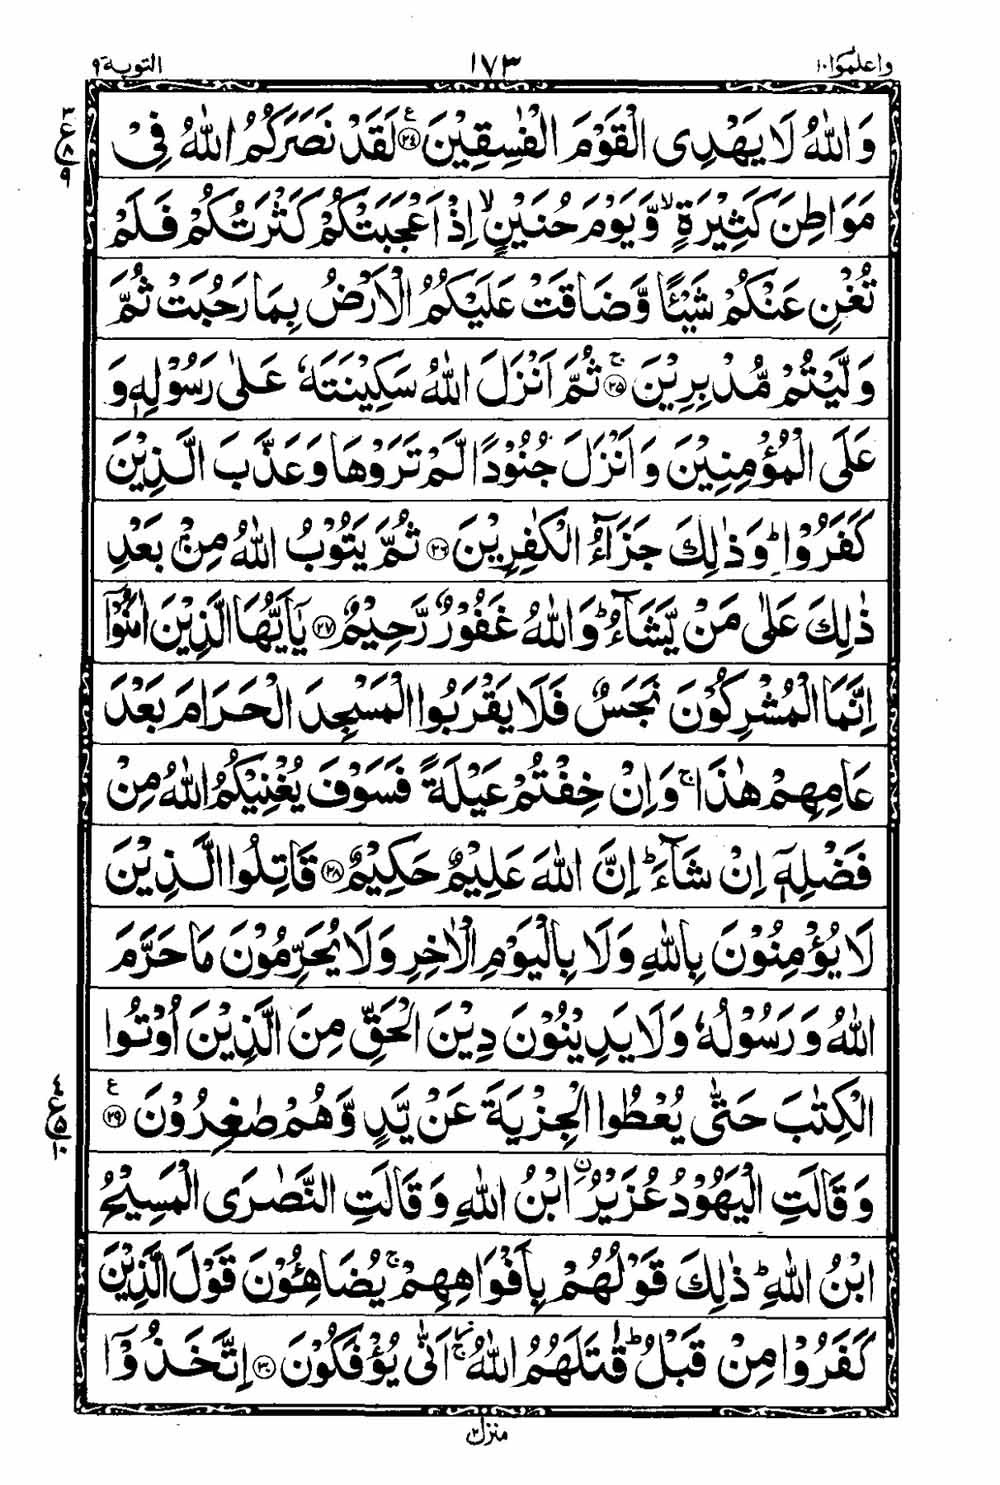 واعلموا ١٠ ١٧٣ التوبة ٩
وَاللّٰهُ لَا يَهْدِى الْقَوْمَ الْفٰسِقِيْنَ ۟ع۲۴ لَقَدْ نَصَرَكُمُ اللّٰهُ فِىْ
مَوَاطِنَ كَثِيْرَةٍ ۙ وَّيَوْمَ حُنَيْنٍ ۙ اِذْ اَعْجَبَتْكُمْ كَثْرَتُكُمْ فَلَمْ
تُغْنِ عَنْكُمْ شَيْـًٔا وَّضَاقَتْ عَلَيْكُمُ الْاَرْضُ بِمَا رَحُبَتْ ثُمَّ
وَلَّيْتُمْ مُّدْبِرِيْنَ ۚ۲۵ ثُمَّ اَنْزَلَ اللّٰهُ سَكِيْنَتَهٗ عَلٰى رَسُوْلِهٖ وَ
عَلَى الْمُؤْمِنِيْنَ وَاَنْزَلَ جُنُوْدًا لَّمْ تَرَوْهَا وَعَذَّبَ الَّذِيْنَ
كَفَرُوْا ؕ وَذٰلِكَ جَزَآءُ الْكٰفِرِيْنَ ۲۶ ثُمَّ يَتُوْبُ اللّٰهُ مِنْۢ بَعْدِ
ذٰلِكَ عَلٰى مَنْ يَّشَآءُ ؕ وَاللّٰهُ غَفُوْرٌ رَّحِيْمٌ ۲۷ يٰۤاَيُّهَا الَّذِيْنَ اٰمَنُوْۤا
اِنَّمَا الْمُشْرِكُوْنَ نَجَسٌ فَلَا يَقْرَبُوا الْمَسْجِدَ الْحَرَامَ بَعْدَ
عَامِهِمْ هٰذَا ۚ وَاِنْ خِفْتُمْ عَيْلَةً فَسَوْفَ يُغْنِيْكُمُ اللّٰهُ مِنْ
فَضْلِهٖۤ اِنْ شَآءَ ؕ اِنَّ اللّٰهَ عَلِيْمٌ حَكِيْمٌ ۲۸ قَاتِلُوا الَّذِيْنَ
لَا يُؤْمِنُوْنَ بِاللّٰهِ وَلَا بِالْيَوْمِ الْاٰخِرِ وَلَا يُحَرِّمُوْنَ مَا حَرَّمَ
اللّٰهُ وَرَسُوْلُهٗ وَلَا يَدِيْنُوْنَ دِيْنَ الْحَقِّ مِنَ الَّذِيْنَ اُوْتُوا
الْكِتٰبَ حَتّٰى يُعْطُوا الْجِزْيَةَ عَنْ يَّدٍ وَّهُمْ صٰغِرُوْنَ ع۲۹
وَقَالَتِ الْيَهُوْدُ عُزَيْرُ ۨ ابْنُ اللّٰهِ وَقَالَتِ النَّصٰرَى الْمَسِيْحُ
ابْنُ اللّٰهِ ؕ ذٰلِكَ قَوْلُهُمْ بِاَفْوَاهِهِمْ ۚ يُضَاهِـُٔوْنَ قَوْلَ الَّذِيْنَ
كَفَرُوْا مِنْ قَبْلُ ؕ قٰتَلَهُمُ اللّٰهُ ۚ اَنّٰى يُؤْفَكُوْنَ ۳۰ اِتَّخَذُوْۤا
منزل ۲